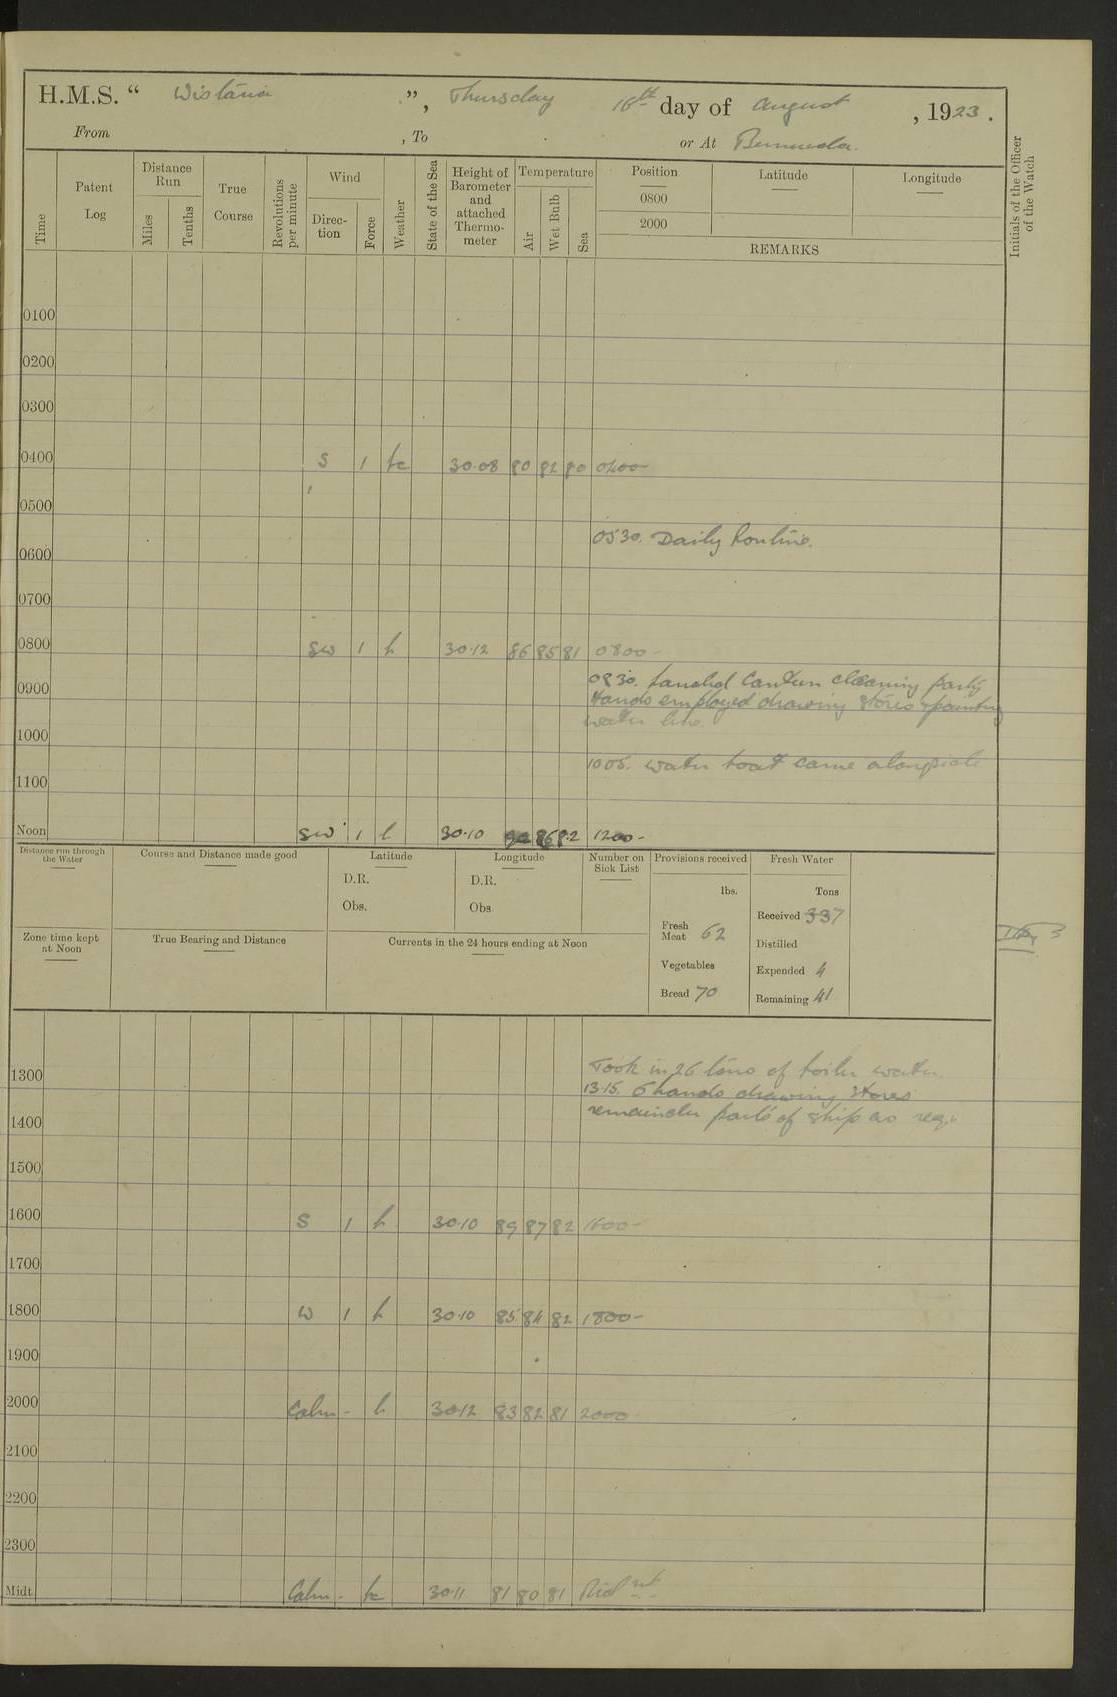 H.M.S. “ Wistaria ”, Thursday 16th day of August, 1923.
From , To or At Bermuda.
Time
Patent Log
Distance Run
Miles
Tenths
True Course
Revolutions per minute
Wind
Direction
Force
Weather
State of the Sea
Height of Barometer and attached Thermometer
Temperature
Air
Wet Bulb
Sea
Position
0800
2000
Latitude
Longitude
REMARKS
Initials of the Officer of the Watch
0100
0200
0300
0400 S 1 bc 30.08 80 82 80 0400-
0500
0530. Daily Routine.
0600
0700
0800 SW 1 b 30.12 86 85 81 0800-
0830. Landed Canteen cleaning party
0900
Hands employed drawing stores & painting
water line.
1000
1005. Water boat came alongside
1100
Noon SW 1 b 30.10 86 82 1200-
Distance run through the Water
Course and Distance made good
Latitude
D.R.
Obs.
Longitude
D.R.
Obs
Number on Sick List
Provisions received
lbs.
Fresh Meat 62
Vegetables
Bread 70
Fresh Water
Tons
Received 337
Distilled
Expended 4
Remaining 41
Zone time kept at Noon
True Bearing and Distance
Currents in the 24 hours ending at Noon
Took in 26 tons of boiler water.
1300
13.15. 6 hands drawing stores
remainder part of ship as req.
1400
1500
1600 S 1 b 30.10 89 87 82 1600-
1700
1800 W 1 b 30.10 85 84 82 1800-
1900
2000 Calm - b 30.12 83 82 81 2000-
2100
2200
2300
Midt. Calm - bc 30.11 81 80 81